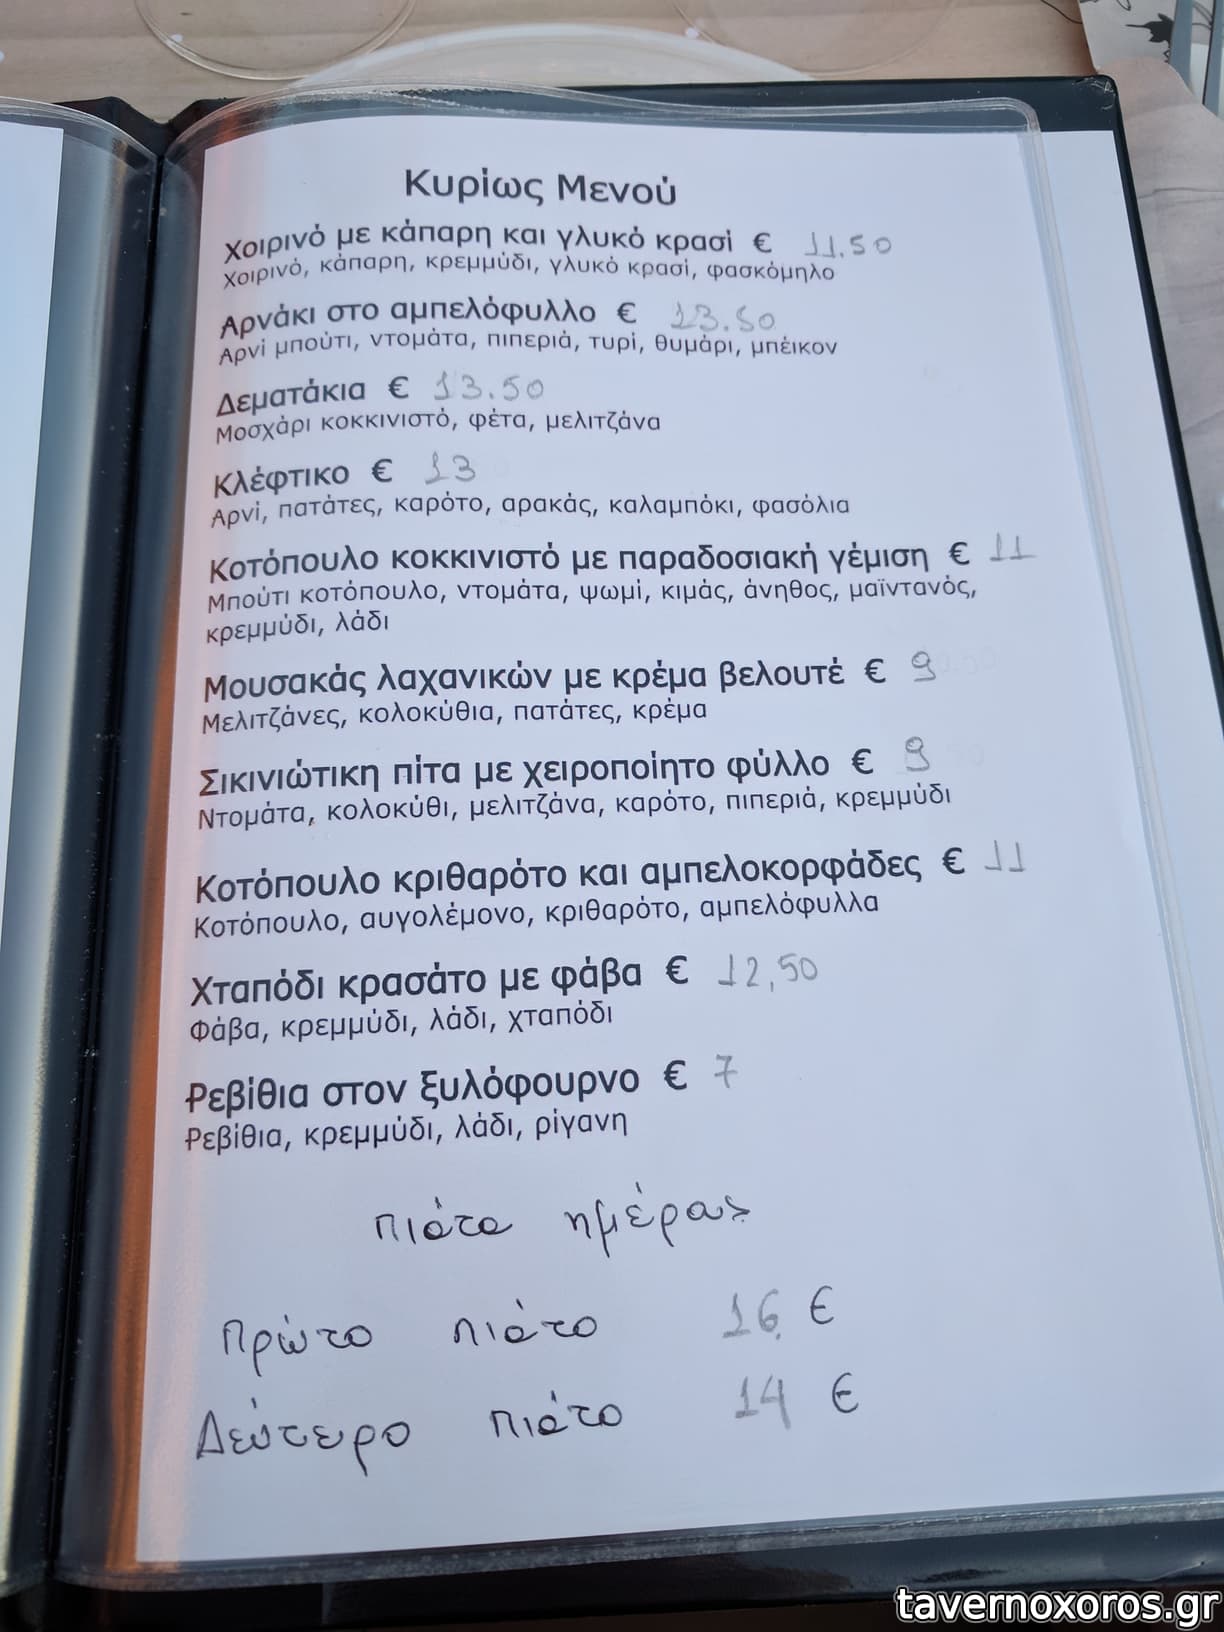 Κυρίως Μενού
Χοιρινό με κάπαρη και γλυκό κρασί € 11.50
Χοιρινό, κάπαρη, κρεμμύδι, γλυκό κρασί, φασκόμηλο
Αρνάκι στο αμπελόφυλλο € 13.50
Αρνί μπούτι, ντομάτα, πιπεριά, τυρί, θυμάρι, μπέικον
Δεματάκια € 13.50
Μοσχάρι κοκκινιστό, φέτα, μελιτζάνα
Κλέφτικο € 13
Αρνί, πατάτες, καρότο, αρακάς, καλαμπόκι, φασόλια
Κοτόπουλο κοκκινιστό με παραδοσιακή γέμιση € 11
Μπούτι κοτόπουλο, ντομάτα, ψωμί, κιμάς, άνηθος, μαϊντανός,
κρεμμύδι, λάδι
Μουσακάς λαχανικών με κρέμα βελουτέ € 9
Μελιτζάνες, κολοκύθια, πατάτες, κρέμα
Σικινιώτικη πίτα με χειροποίητο φύλλο € 9
Ντομάτα, κολοκύθι, μελιτζάνα, καρότο, πιπεριά, κρεμμύδι
Κοτόπουλο κριθαρότο και αμπελοκορφάδες € 11
Κοτόπουλο, αυγολέμονο, κριθαρότο, αμπελόφυλλα
Χταπόδι κρασάτο με φάβα € 12,50
Φάβα, κρεμμύδι, λάδι, χταπόδι
Ρεβίθια στον ξυλόφουρνο € 7
Ρεβίθια, κρεμμύδι, λάδι, ρίγανη
πιάτα ημέρας
Πρώτο πιάτο 16 €
Δεύτερο πιάτο 14 €
tavernoxoros.gr